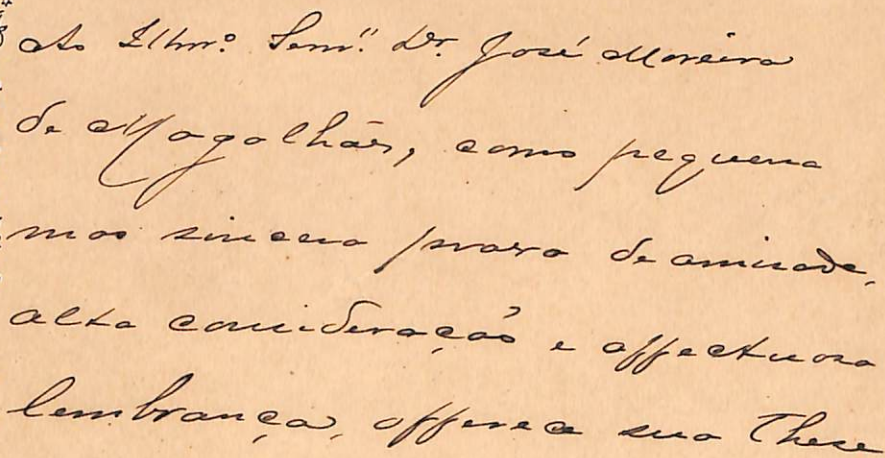 Ao Illmo. Senr. Dr. José Moreira
de Magalhães, como pequena
mas sincera prova de amisade,
alta consideração e affectuosa
lembrança, offerece sua These